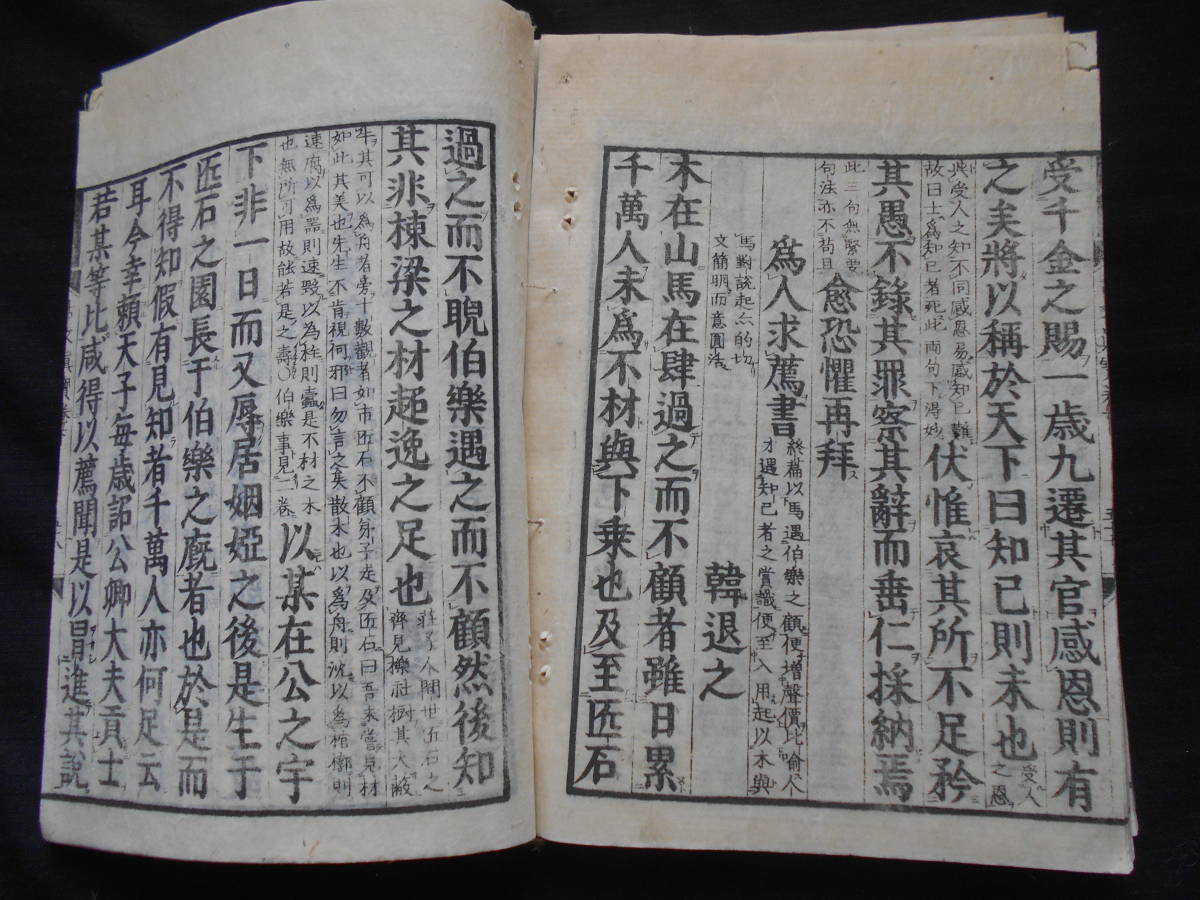 受千金之賜一歳九遷其官感恩則有
之矣將以稱於天下曰知己則未也受人之恩
與受人之知不同感恩易感知己難故曰士爲知己者死此兩句下得妙伏惟哀其所不足矜
其愚不錄其罪察其辭而垂仁採納焉
此三句無緊要句法亦不苟且愈恐懼再拜
爲人求薦書終篇以馬遇伯樂之顧便增聲價比喻人才遇知己者之賞識便至入用起以木與
馬對說起點的切文簡明而意圓活韓退之
木在山馬在肆過之而不顧者雖日累
千萬人未爲不材與下乗也及至匠石
過之而不睨伯樂遇之而不顧然後知
其非棟梁之材超逸之足也莊子人間世匠石之齊見櫟社樹其大蔽
牛其可以爲舟者旁十數觀者如市匠石不顧弟子走及匠石曰吾未嘗見材如此其美也先生不肯視何邪曰勿言之矣散木也以爲舟則沈以爲棺槨則
速腐以爲器則速毀以爲柱則蠹是不材之木也無所可用故能若是之壽○伯樂事見一卷以某在公之宇
下非一日而又辱居姻婭之後是生于
匠石之園長于伯樂之廐者也於是而
不得知假有見知者千萬人亦何足云
耳今幸賴天子毎歳詔公卿大夫貢士
若某等比咸得以薦聞是以冒進其說